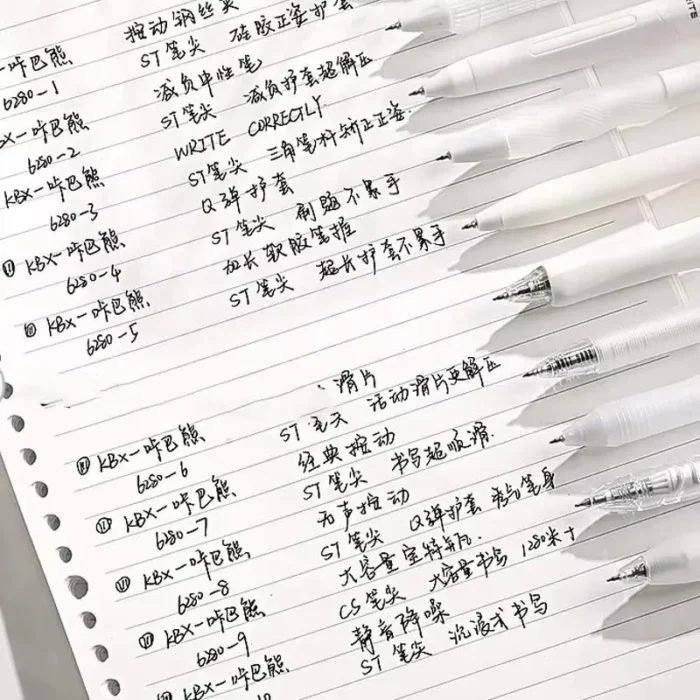 按动钢丝夹
-咔巴熊 ST笔尖 硅胶正姿护套
6280-1 减负中性笔
KBX-咔巴熊 ST笔尖 减负护套超解压
6280-2 WRITE CORRECTLY
KBX-咔巴熊 ST笔尖 三角笔杆矫正正姿.
6280-3 Q弹护套
KBX-咔巴熊 ST笔尖 刷题不累手
6280-4 加长软胶笔握
KBX-咔巴熊 ST笔尖 超长护套不累手
6280-5
滑片
KBX-咔巴熊 ST笔尖 活动滑片更解压
6280-6 经典按动
KBX-咔巴熊 ST笔尖 书写超顺滑.
6280-7 无声按动
KBX-咔巴熊 ST笔尖 Q弹护套 笔身
6280-8 大容量宝特瓶.
KBX-咔巴熊 CS笔尖 大容量书写 1280米
6280-9 静音降噪
KBX-咔巴熊 ST笔尖 沉浸式书写